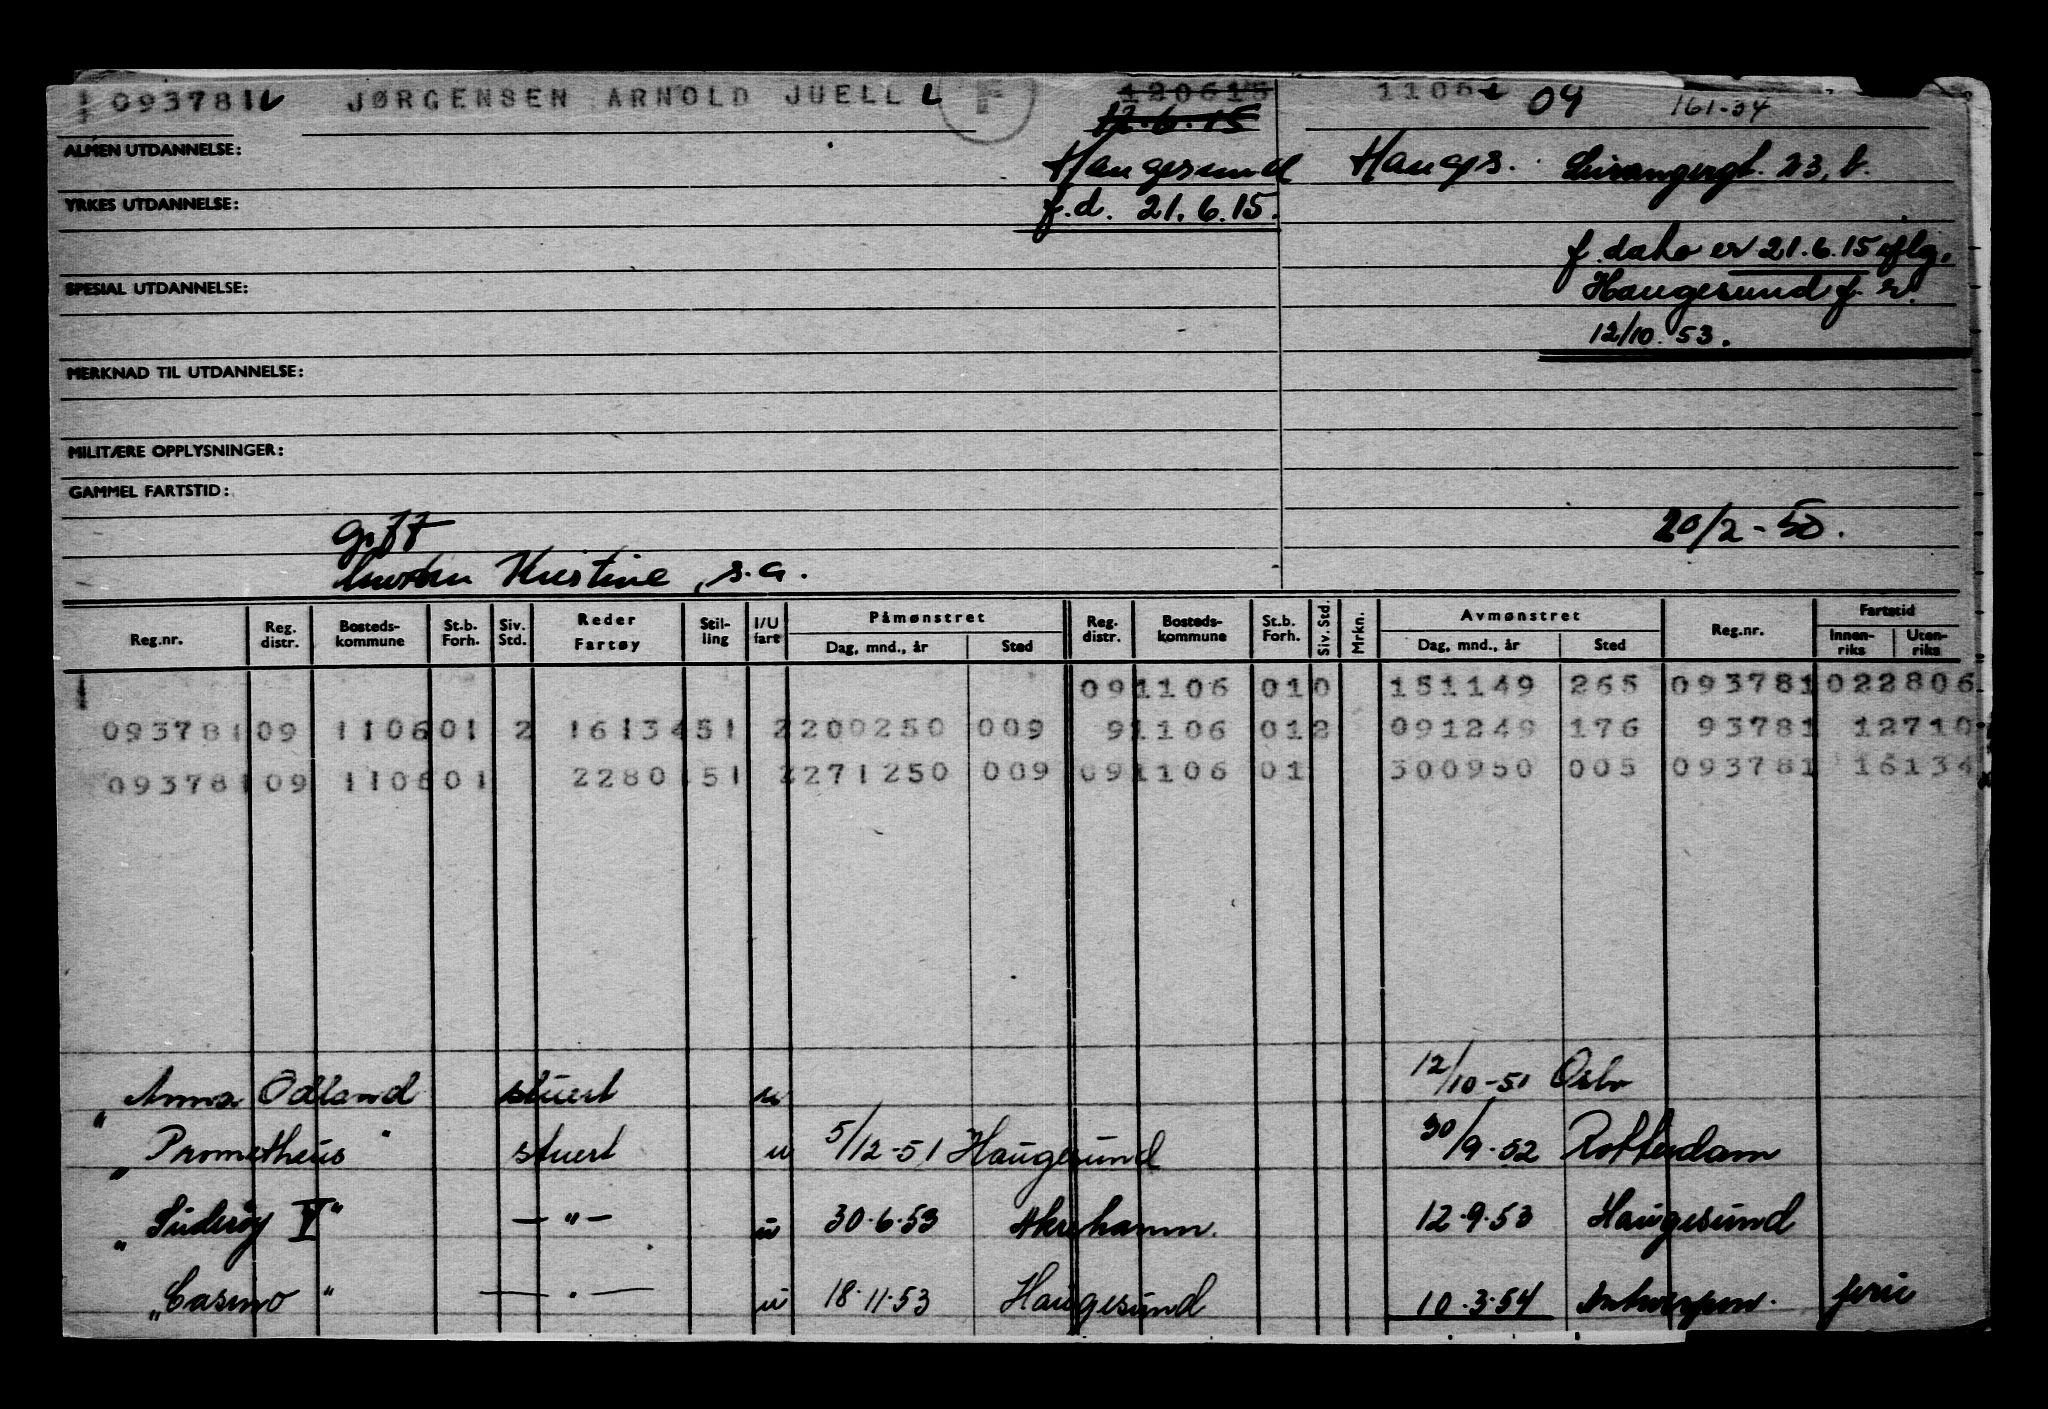 093781 JØRGENSEN ARNOLD JUELL F 120615 1106 04 161-34
12.6.15
ALMEN UTDANNELSE: Haugesund Haugs. 23, b.
YRKES UTDANNELSE: f.d. 21.6.15.
f. dato er 21.6.15 iflg.
SPESIAL UTDANNELSE: Haugesund f. r.
12/10.53.
MERKNAD TIL UTDANNELSE:
MILITÆRE OPPLYSNINGER:
GAMMEL FARTSTID:
gift 20/2-50.
Kristine, s.a.
Reg.nr. Reg. distr. Bosteds-kommune St.b. Forh. Siv. Std. Reder Fartøy Stil-ling I/U fart Påmønstret Dag, mnd., år Sted Reg. distr. Bosteds-kommune St.b. Forh. Siv. Std. Mrkn. Avmønstret Dag, mnd., år Sted Reg.nr. Fartstid Innen-riks Uten-riks
091106 010 151149 265 093781 022806
093781 09 1106 01 2 16134 51 2 200250 009 91106 012 091249 176 93781 12710
093781 09 1106 01 2280 51 2 271250 009 091106 01 300950 005 093781 16134
" Anna Odland stuert u 12/10-51 Oslo
" Prometheus " stuert u 5/12-51 Haugesund 30/9-52 Rotterdam
" Suderøy V " — " — u 30.6.53 Akrehamn. 12.9.53 Haugesund
" Casino " — " — u 18.11.53 Haugesund 10.3.54 Antwerpen. ferie